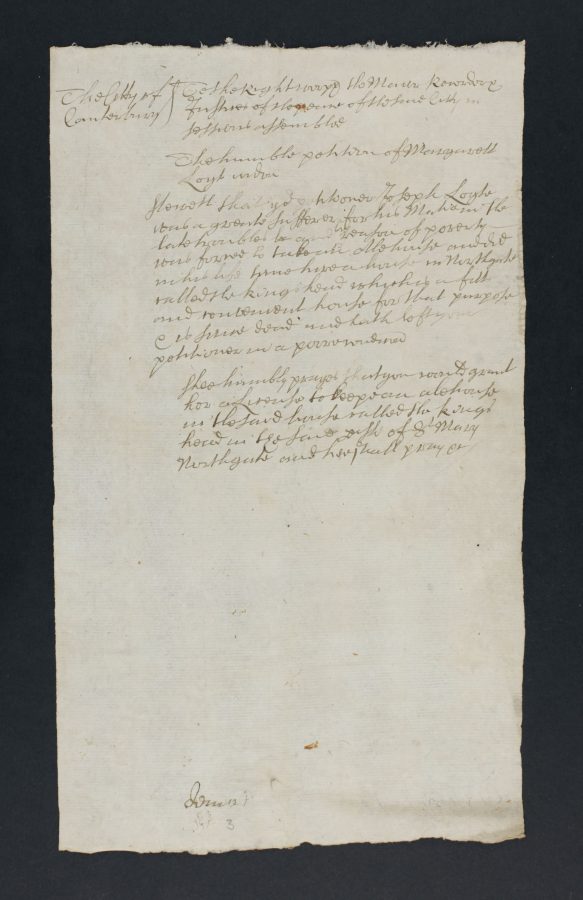 The Citty of
Canterbury
To the Right worpp the Maior Recorder &
Justices of the peace of the same Citty in
sessions assembled
The humble peticon of Margarett
Loyt widow
Sheweth that yor peticoner Joseph Loyte
was a greate sufferer for his Matie in the
late troubles & by reason of poverty
was forced to take an Alehouse and did
in his life time hire a house in Northgate
called the kings head which is a fitt
and convenient house for that purpose
& is since dead and hath left your
peticoner in a poore
Shee humbly prayes that you would grant
her a License to keepe an alehouse
in the said house called the kings
head in the said pish of St Mary
Northgate and hee shall pray &c
3